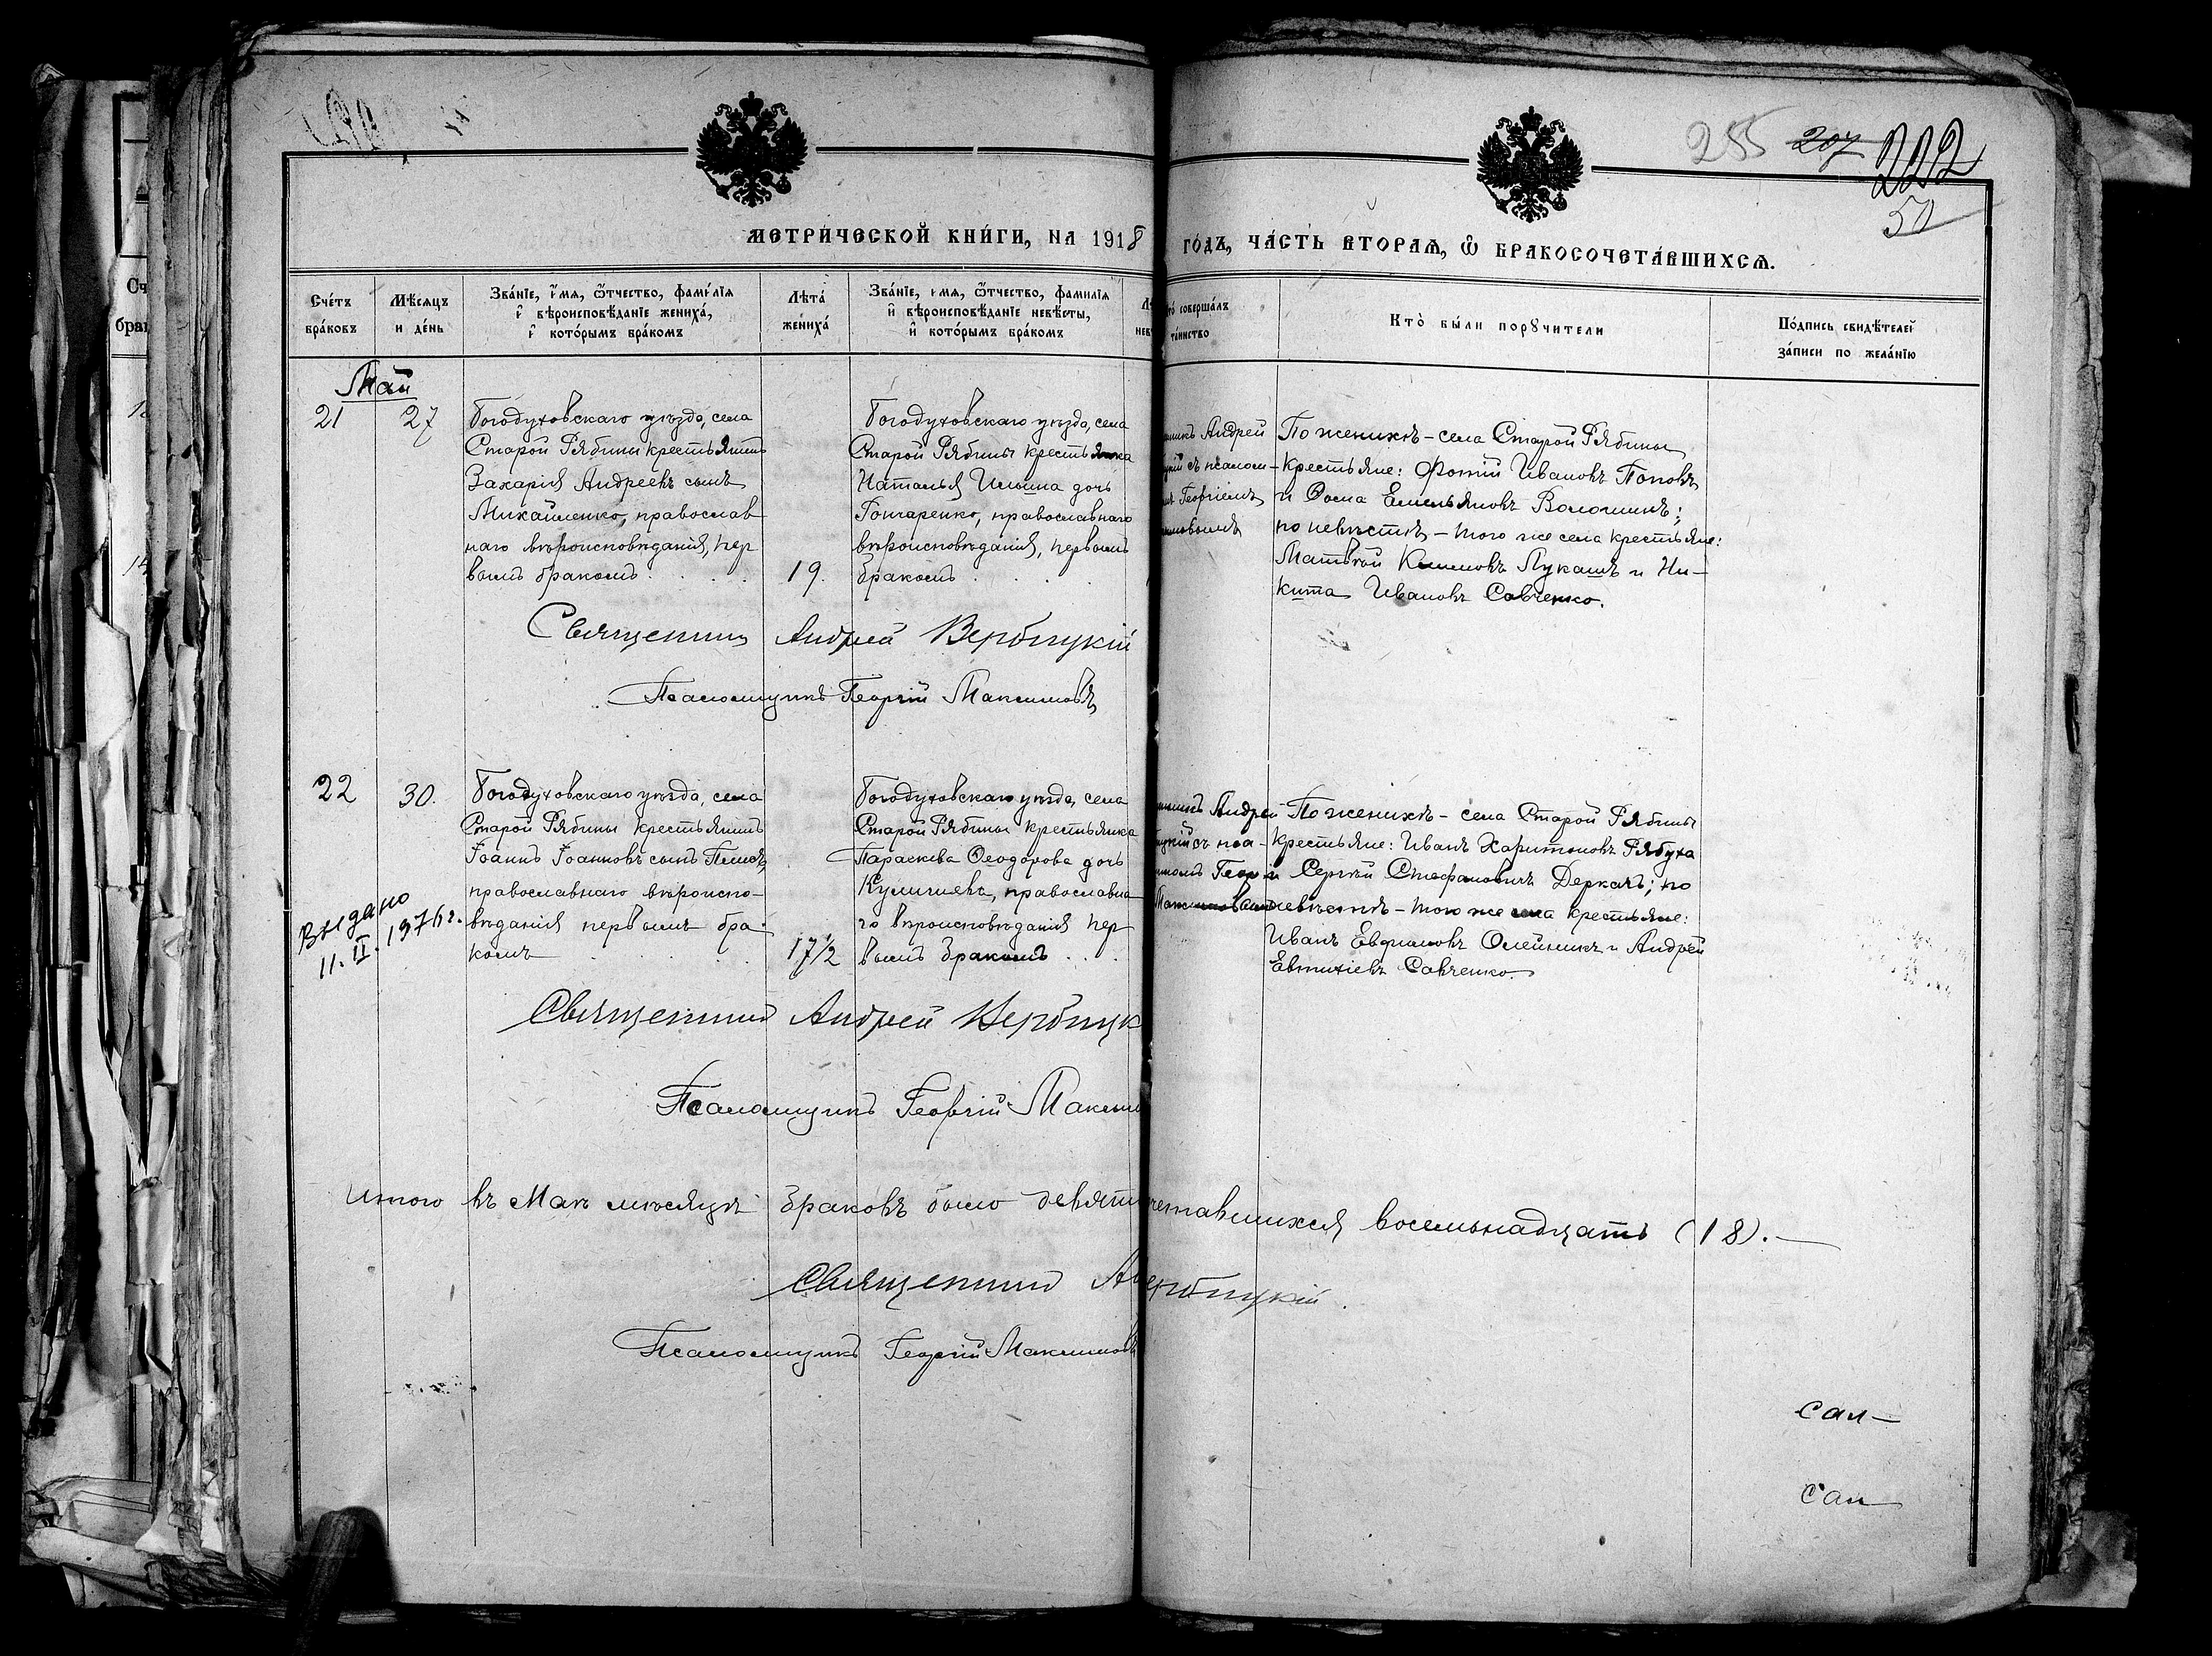 255 207 222
50
МЕТРИ́ЧЕСКОЙ КНИ́ГИ, НА 1918 ГО́ДЪ, ЧА́СТЬ ВТОРАЯ, Ѡ҆ БРАКОСОЧЕТА́ВШИХСЯ.
Сче́тъ бра́ковъ
Мѣ́сяцъ и де́нь
Зва́нїе, и҆́мя, ѻ҆́тчество, фами́лїя и҆ вѣроисповѣ́данїе жениха́, и҆ кото́рымъ бра́комъ
Лѣта́ жениха́
Зва́нїе, и҆мя, ѻ҆́тчество, фамилїя и҆ вѣроисповѣ́данїе невѣ́сты, и҆ кото́рымъ бра́комъ
соверша́лъ
та́инство
Кто̀ бы́ли порꙋчители
По́дпись свидѣ́телей за́писи по жела́нїю
Май
21
27
Богодуховскаго уѣзда, села
Старой Рябины крестьянинъ
Захарія Андреевъ сынъ
Михайленко, православ
наго вѣроисповѣданія, пер
вымъ бракомъ . . . .
19.
Богодуховскаго уѣзда, села
Старой Рябины крестьянка
Наталья Ильина дочь
Гончаренко, православнаго
вѣроисповѣданія, первымъ
бракомъ . . .
Андрей
съ псалом-
Георгіемъ
По женихѣ – села Старой Рябины
крестьяне: Фотій Ивановъ Поповъ
и Ѳома Емельяновъ Волошинъ;
по невѣстѣ – того же села крестьяне:
Матвѣй Климовъ Лукашъ и Ни-
кита Ивановъ Савченко.
Священникъ Андрей Вербицкій
Псаломщикъ Георгій Максимовъ
22
30.
Богодуховскаго уѣзда, села
Старой Рябины крестьянинъ
Іоаннъ Іоанновъ сынъ
православнаго вѣроиспо-
вѣданія первымъ бра-
комъ . . . .
17½
Богодуховскаго уѣзда, села
Старой Рябины крестьянка
Параскева Ѳеодорова дочь
православна
го вѣроисповѣданія пер
вымъ бракомъ . . .
Андрей
съ пса-
По женихѣ – села Старой Рябины
крестьяне: Иванъ Харитоновъ Рябуха
и Сергѣй Стефановичъ Деркачъ; по
невѣстѣ – того же села крестьяне:
Иванъ Евфимовъ Олейникъ и Андрей
Евтихіевъ Савченко.
Выдано
11.II.1976г.
Священникъ Андрей Вербицк
Псаломщикъ Георгій Максим
Итого въ Маѣ мѣсяцѣ браковъ было девять четавшихся восемьнадцать (18). —
Священникъ А ербицкій.
Псаломщикъ Георгій Максимовъ